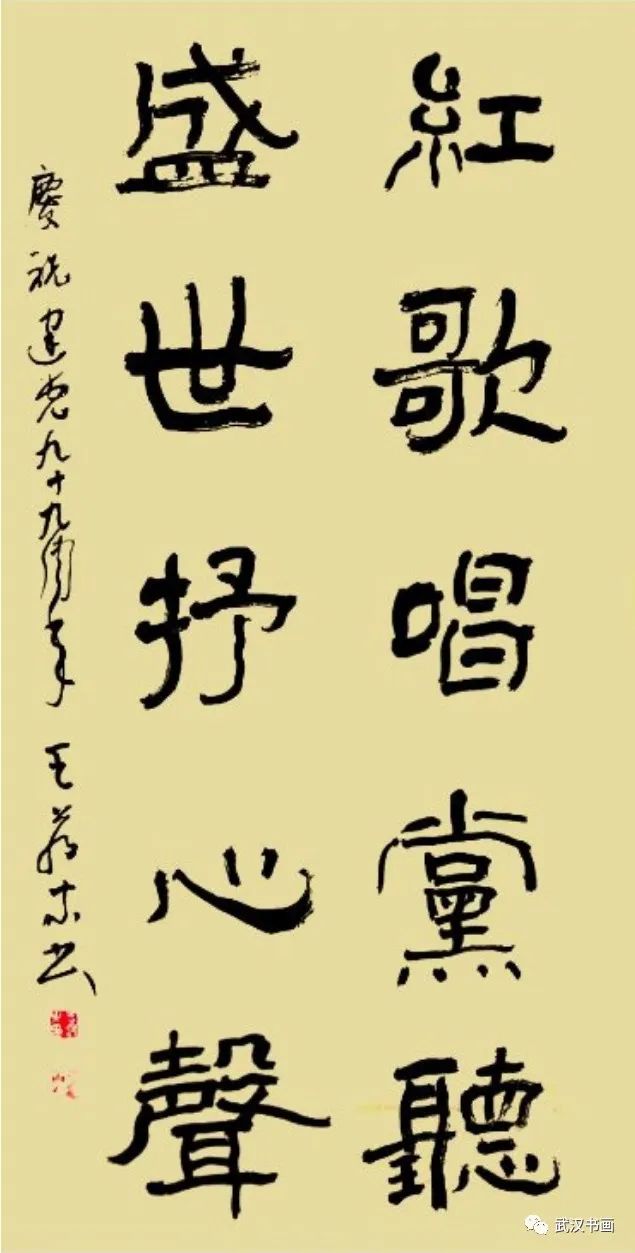 紅歌唱黨聽
盛世抒心聲
慶祝建党九十九周年 王
书
武汉书画